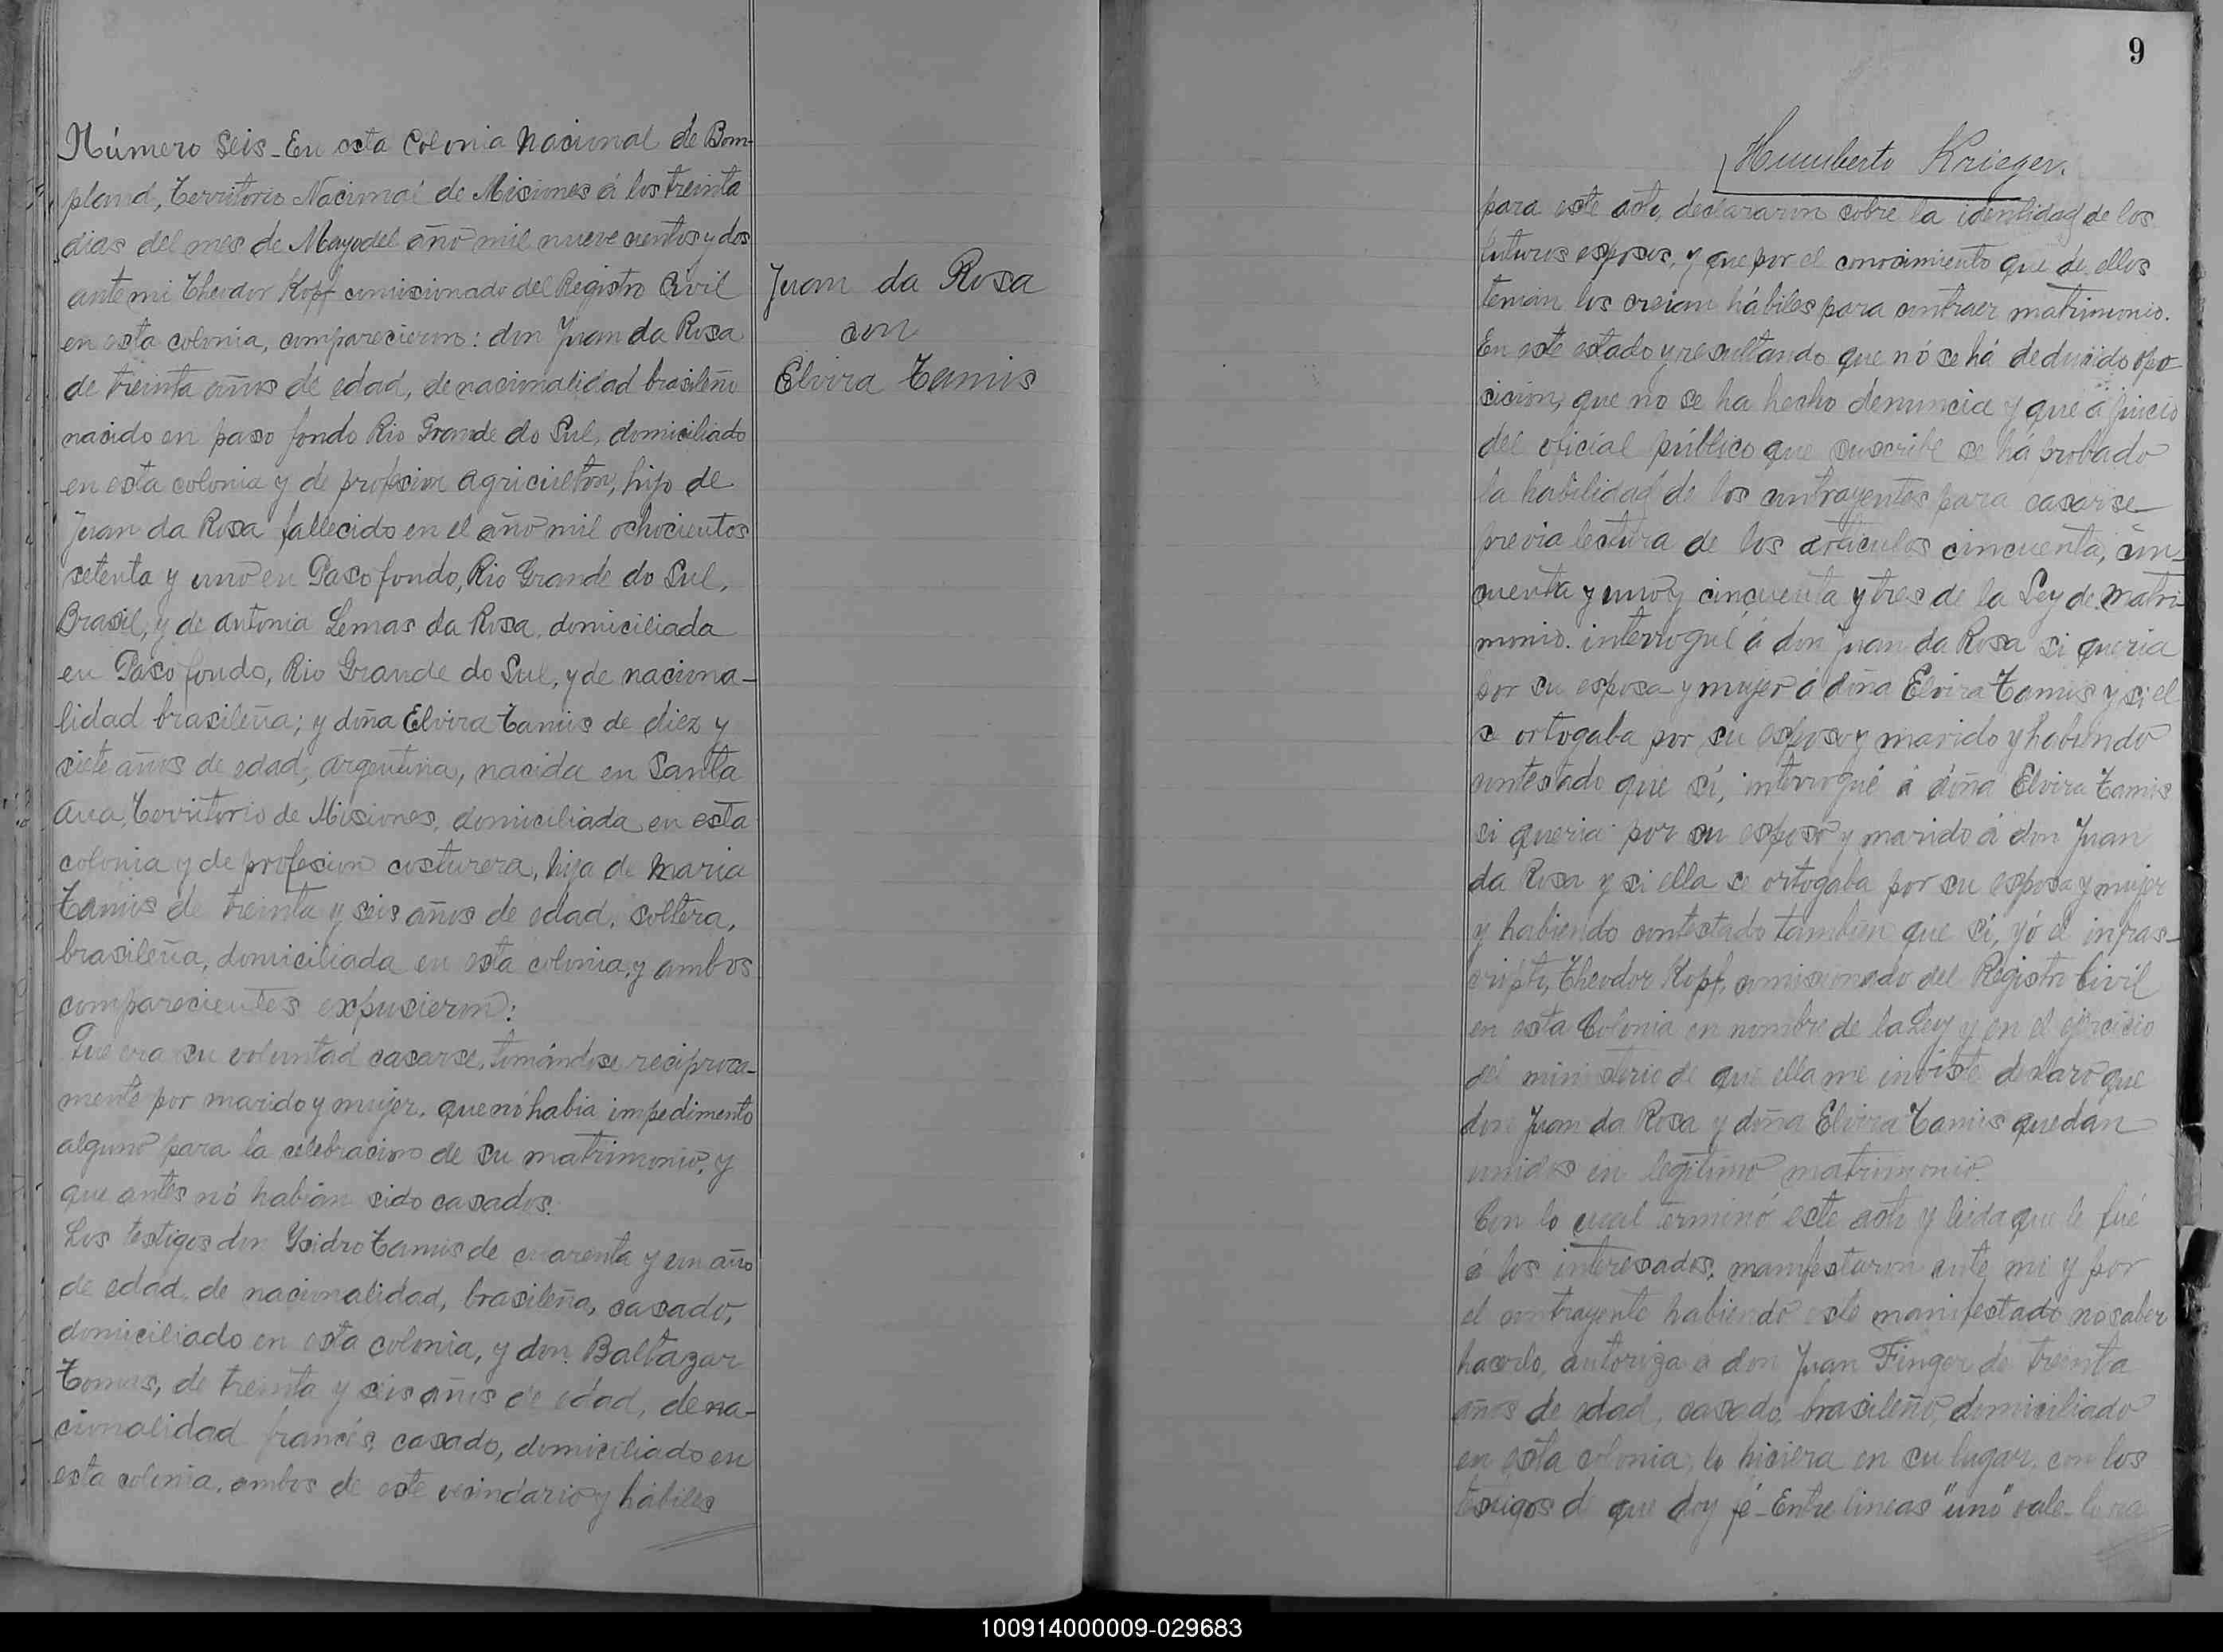 Número Seis - En esta Colonia Nacional de Bom-
pland, Territorio Nacional de Misiones á los treinta
dias del mes de Mayo del año mil nueve cientos y dos
ante mi Theodor Kopf comisionado del Registro Civil
en esta colonia, comparecieron: don Juan da Rosa
de treinta años de edad, de nacionalidad brasileño
nacido en paso fondo Rio Grande do Sul, domiciliado
en esta colonia y de profesion agricultor, hijo de
Juan da Rosa fallecido en el año mil ochocientos
setenta y uno en Paso fondo, Rio Grande do Sul,
Brasil, y de Antonia Lemas da Rosa, domiciliada
en Paso fondo, Rio Grande do Sul, y de naciona-
lidad brasileña; y doña Elvira Tamis de diez y
siete años de edad, argentina, nacida en Santa
Ana, Territorio de Misiones, domiciliada en esta
colonia y de profesion costurera, hija de Maria
Tamis de treinta y seis años de edad, soltera,
brasileña, domiciliada en esta colonia, y ambos
comparecientes expusieron:
Que era su voluntad casarse, tomándose reciproca-
mente por marido y mujer, que nó habia impedimento
alguno para la celebracion de su matrimonio, y
que antes nó habian sido casados.
Los testigos don Ysidro Tamis de cuarenta y un año
de edad, de nacionalidad, brasileña, casado,
domiciliado en esta colonia, y don Baltazar
Tomas, de treinta y seis años de edad, de na-
cionalidad francés, casado, domiciliado en
esta colonia, ambos de este vecindario y hábiles
Juan da Rosa
con
Elvira Tamis
9
Humberto Krieger.
para este acto, declararon sobre la identidad de los
futuros esposos, y que por el conocimiento que de ellos
tenian los creian hábiles para contraer matrimonio.
En este estado y resultando que nó se há deducido opo-
sicion, que no se ha hecho denuncia y que á juicio
del oficial público que suscribe se há probado
la habilidad de los contrayentes para casarse
previa lectura de los articulos cincuenta, cin-
cuenta y uno y cincuenta y tres de la Ley de Matri-
monio. interrogué á don Juan da Rosa si queria
por su esposa y mujer á doña Elvira Tamis y si el
se ortogaba por su esposo y marido y habiendo
contestado que sí, interrogué á doña Elvira Tamis
si queria por su esposo y marido á don Juan
da Rosa y si ella se ortogaba por su esposa y mujer
y habiendo contestado tambien que sí, yó el infras-
cripto, Theodor Kopf, comisionado del Registro Civil
en esta Colonia en nombre de la Ley y en el ejercicio
del ministerio de que ella me inviste declaro que
don Juan da Rosa y doña Elvira Tamis quedan
unidos en legitimo matrimonio.
Con lo cual terminó este acto y leida que le fué
á los interesados, manifestaron ante mi y por
el contrayente habiendo este manifestado no saber
hacerlo, autoriza á don Juan Finger de treinta
años de edad, casado, brasileño, domiciliado
en esta colonia, lo hiciera en su lugar, con los
testigos de que doy fé - Entre lineas "uno" vale -
100914000009-029683